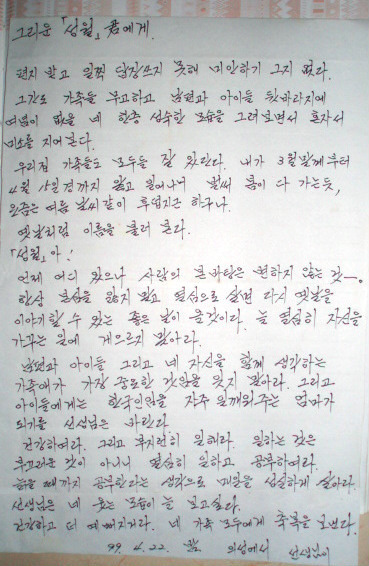 그리운 「성월」君에게.
편지 받고 일찍 답장쓰지 못해 미안하기 그지 없다.
그간도 가족들 무고하고 남편과 아이들 뒷바라지에
여념이 없을 네 한층 성숙한 모습을 그려보면서 혼자서
미소를 지어본다.
우리집 가족들도 모두들 잘 있단다. 내가 3월말께부터
4월 15일경까지 앓고 일어나니 벌써 봄이 다 가는듯,
요즘은 여름 날씨같이 후덥지근 하구나.
옛날처럼 이름을 불러 본다.
「성월」아!
언제 어디 있으나 사람의 본바탕은 변하지 않는 것—.
항상 본심을 잃지 말고 열심으로 살면 다시 옛날을
이야기할 수 있는 좋은 날이 올것이다. 늘 열심히 자신을
가꾸는 일에 게으르지 말아라.
남편과 아이들 그리고 네 자신을 함께 생각하는
가족애가 가장 중요한 것임을 잊지 말아라. 그리고
아이들에게는 한국인임을 자주 일깨워주는 엄마가
되기를 선생님은 바란다.
건강하여라. 그리고 부지런히 일해라. 일하는 것은
부끄러운 것이 아니니 열심히 일하고 공부하여라.
늙을 때까지 공부한다는 생각으로 매일을 성실하게 살아라.
선생님은 네 웃는 모습이 늘 보고싶다.
건강하고 더 예뻐지거라. 네 가족 모두에게 축복을 보낸다.
99. 4. 22. 밤 의성에서 선생님이